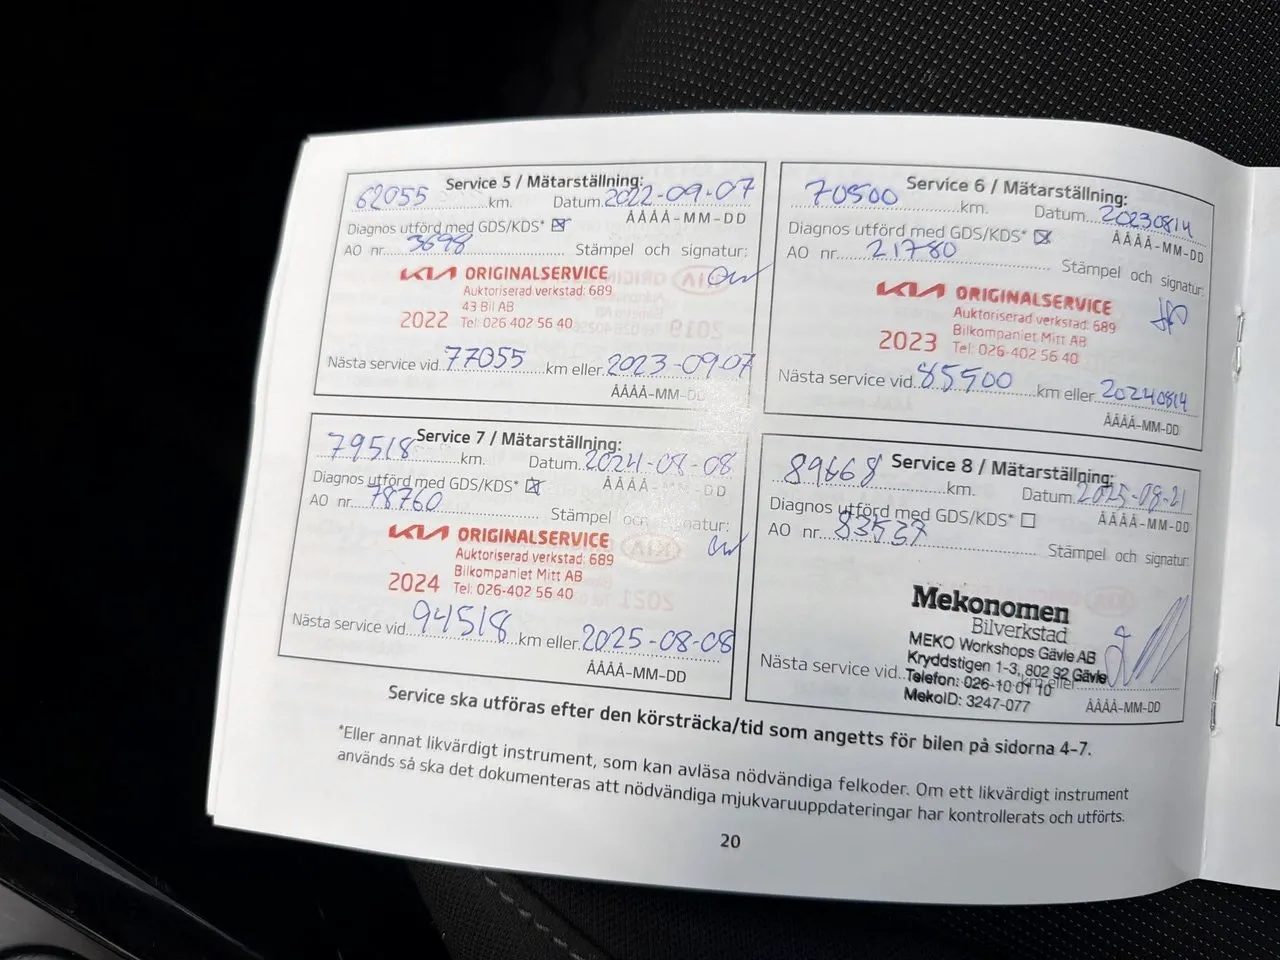 Service 5 / Mätarställning:
62055 km. Datum 2022-09-07
ÅÅÅÅ-MM-DD
Diagnos utförd med GDS/KDS*
AO nr. 3698 Stämpel och signatur:
KIA ORIGINALSERVICE
Auktoriserad verkstad: 689
43 Bil AB
2022 Tel: 026 402 56 40
Nästa service vid 77055 km eller 2023-09-07
ÅÅÅÅ-MM-DD
Service 6 / Mätarställning:
70500 km. Datum 20230814
ÅÅÅÅ-MM-DD
Diagnos utförd med GDS/KDS*
AO nr. 21780 Stämpel och signatur:
KIA ORIGINALSERVICE
Auktoriserad verkstad: 689
Bilkompaniet Mitt AB
2023 Tel: 026-402 56 40
Nästa service vid 85500 km eller 20240814
ÅÅÅÅ-MM-DD
Service 7 / Mätarställning:
79518 km. Datum 2024-08-08
ÅÅÅÅ-MM-DD
Diagnos utförd med GDS/KDS*
AO nr. 78760 Stämpel och signatur:
KIA ORIGINALSERVICE
Auktoriserad verkstad: 689
Bilkompaniet Mitt AB
2024 Tel: 026-402 56 40
Nästa service vid 94518 km eller 2025-08-08
ÅÅÅÅ-MM-DD
Service 8 / Mätarställning:
89668 km. Datum 2025-08-21
ÅÅÅÅ-MM-DD
Diagnos utförd med GDS/KDS*
AO nr. 83537 Stämpel och signatur:
Mekonomen
Bilverkstad
MEKO Workshops Gävle AB
Kryddstigen 1-3, 802 92 Gävle
Nästa service vid km eller
Telefon: 026-10 01 10
MekoID: 3247-077
ÅÅÅÅ-MM-DD
Service ska utföras efter den körsträcka/tid som angetts för bilen på sidorna 4-7.
*Eller annat likvärdigt instrument, som kan avläsa nödvändiga felkoder. Om ett likvärdigt instrument
används så ska det dokumenteras att nödvändiga mjukvaruuppdateringar har kontrollerats och utförts.
20